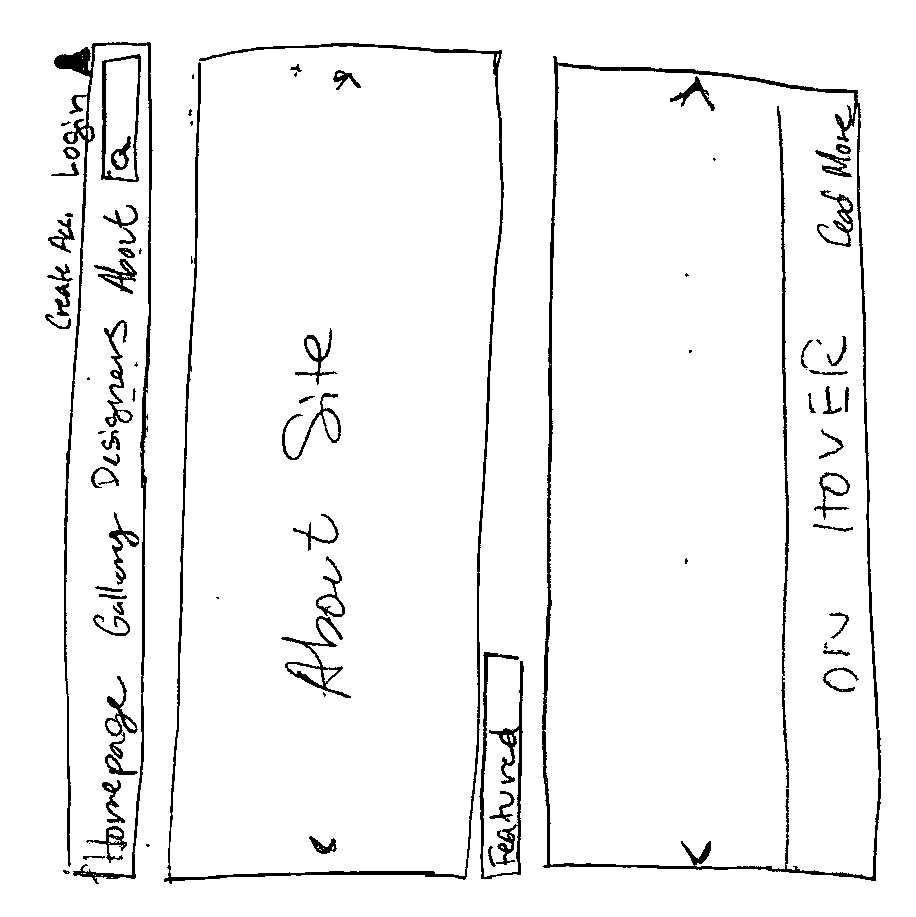 Create Acc. Login
Homepage Gallery Designers About
About Site
Featured
ON HOVER Read More